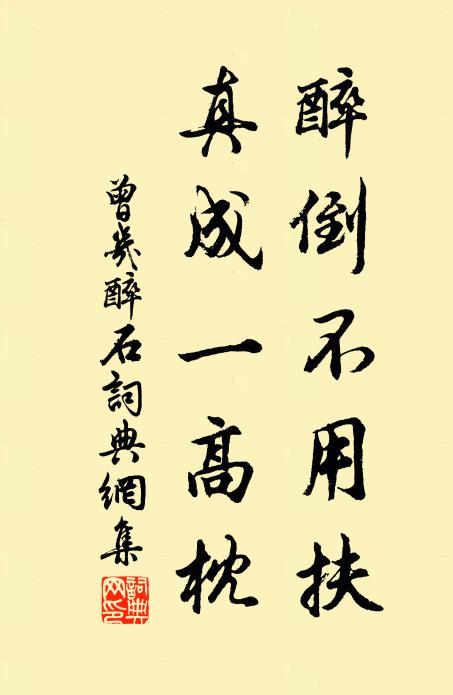 醉倒不用扶
真成一高枕
曾幾醉石詞典網集
詞典
网印